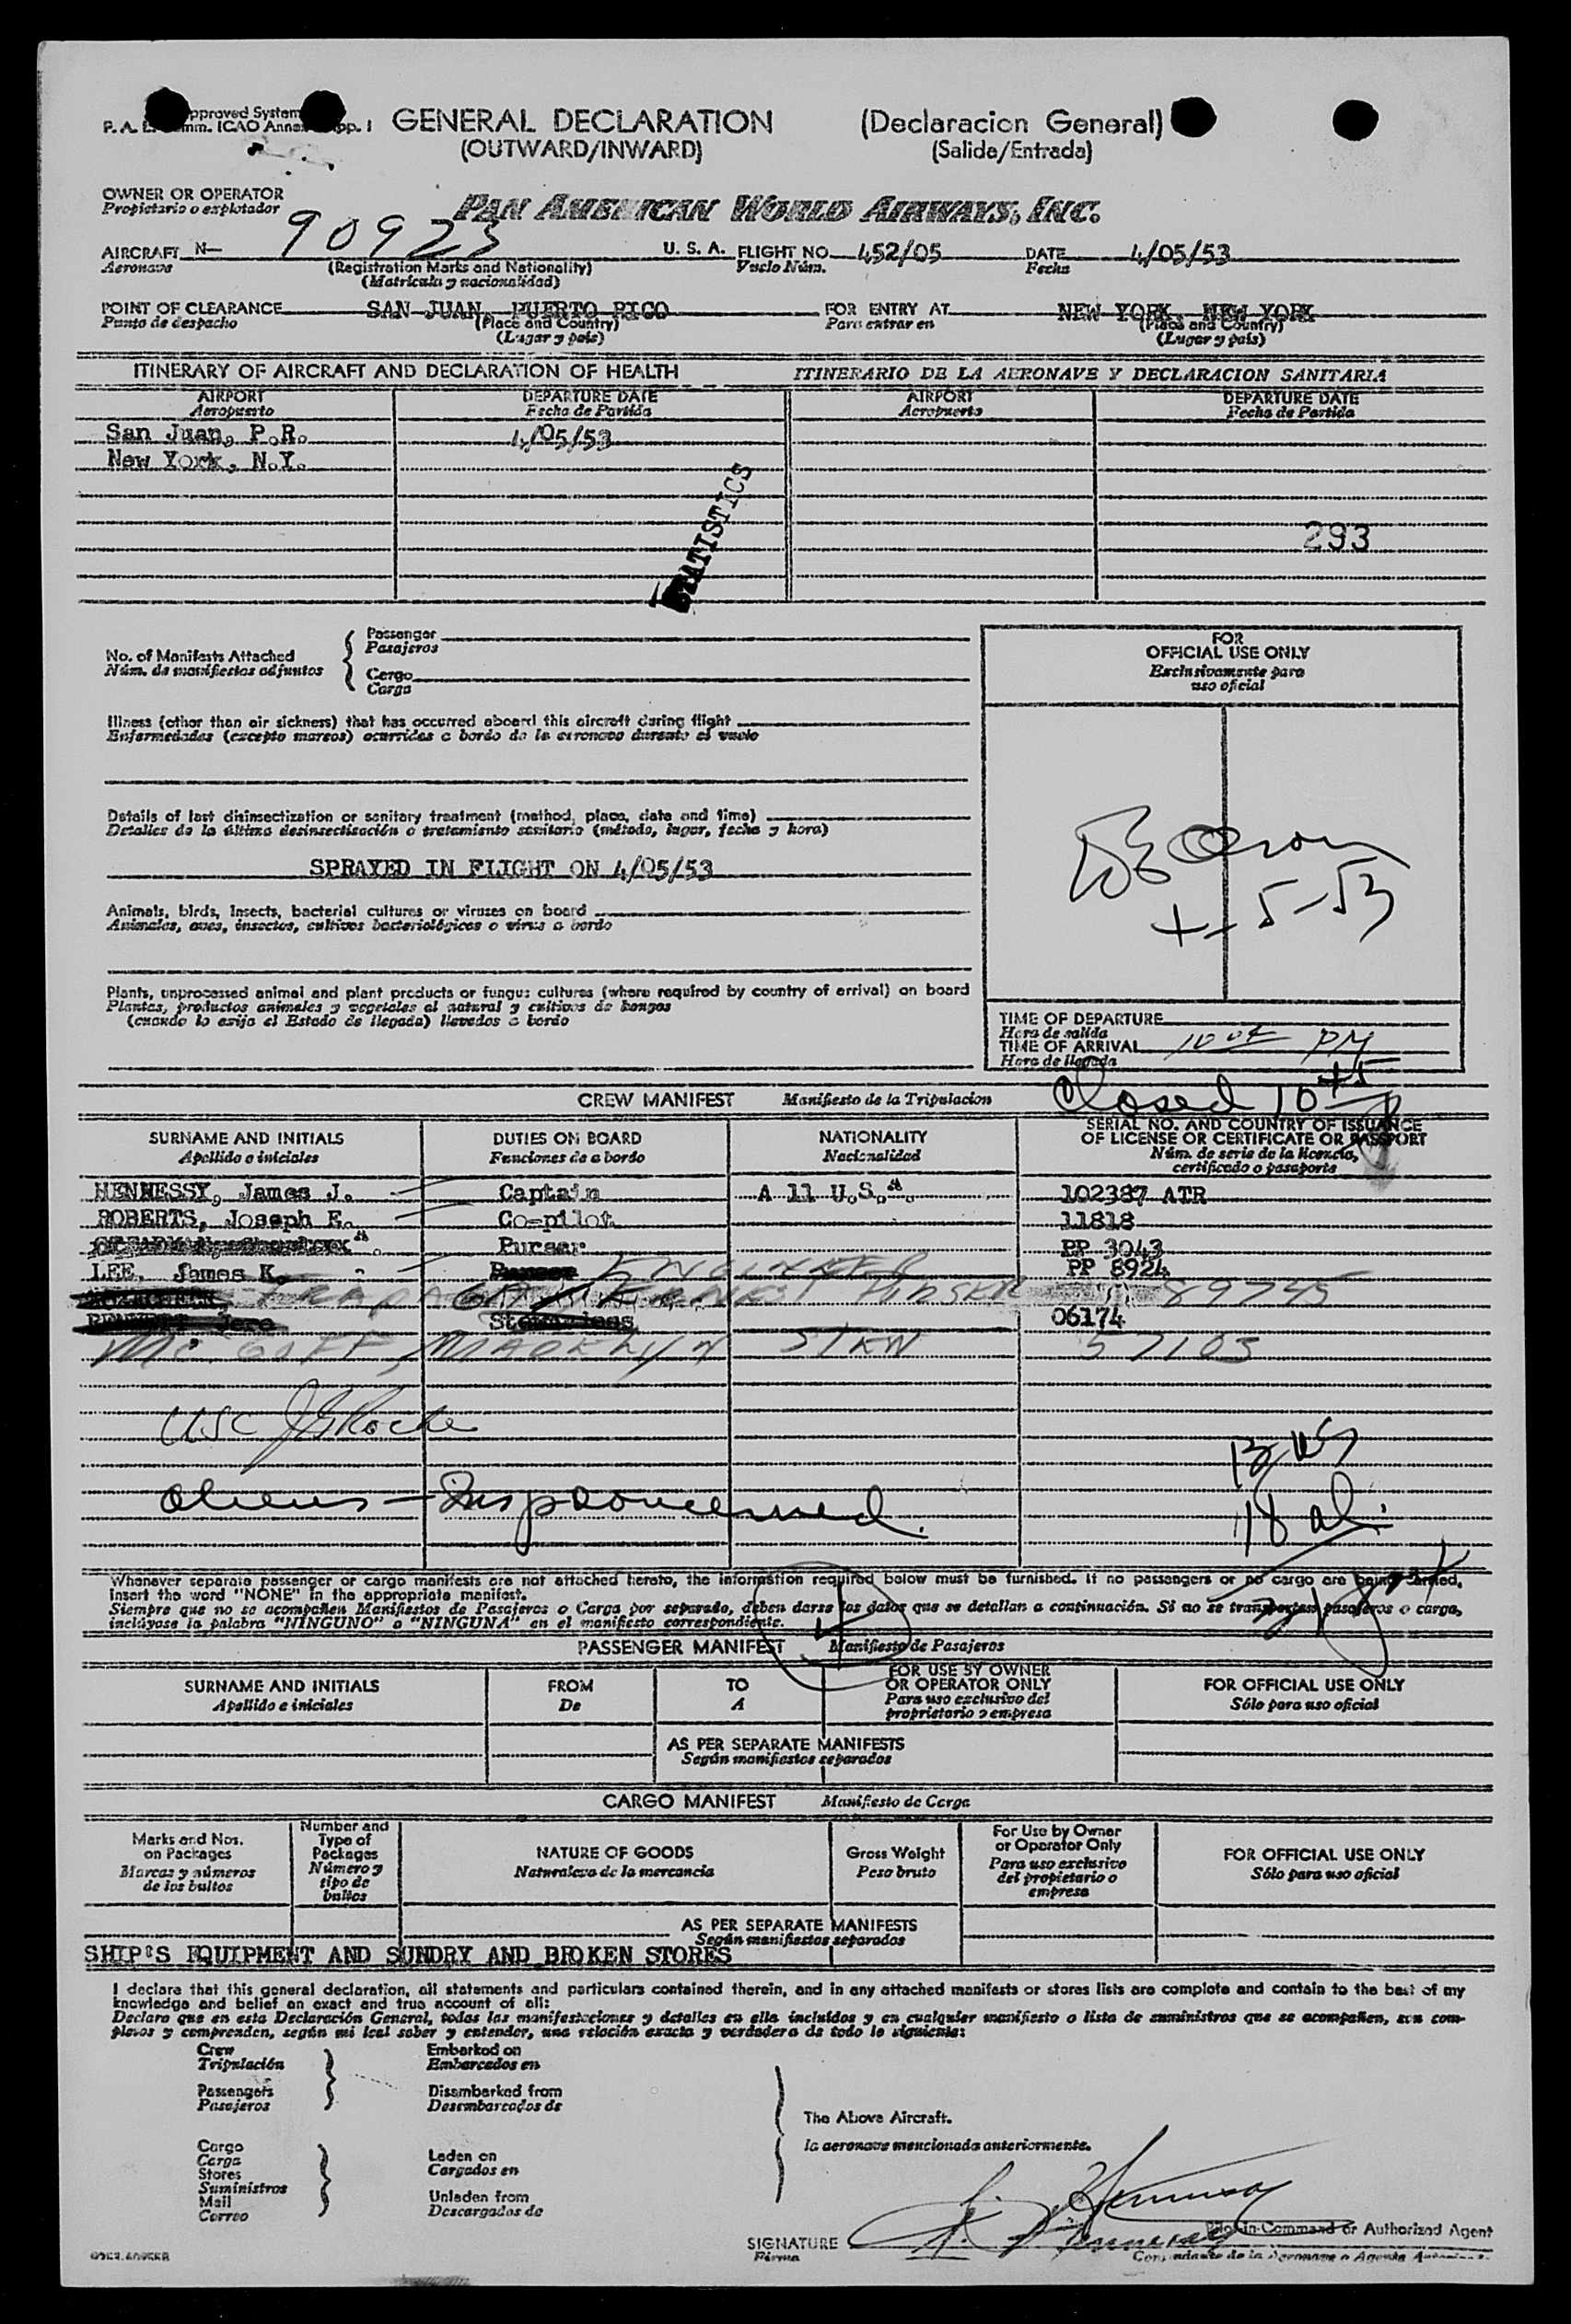 pproved System
P. A. mm. ICAO Anne pp. I
GENERAL DECLARATION (Declaracion General)
(OUTWARD/INWARD) (Salida/Entrada)
OWNER OR OPERATOR
Propietario o explotador
PAN AMERICAN WORLD AIRWAYS, INC.
AIRCRAFT N— 90923 U. S. A. FLIGHT NO. 452/05 DATE 4/05/53
Aeronave (Registration Marks and Nationality) Vuelo Núm. Fecha
(Matrícula y nacionalidad)
POINT OF CLEARANCE SAN JUAN, PUERTO RICO FOR ENTRY AT NEW YORK, NEW YORK
Punto de despacho (Place and Country) Para entrar en (Place and Country)
(Lugar y país) (Lugar y país)
ITINERARY OF AIRCRAFT AND DECLARATION OF HEALTH ITINERARIO DE LA AERONAVE Y DECLARACION SANITARIA
AIRPORT DEPARTURE DATE AIRPORT DEPARTURE DATE
Aeropuerto Fecha de Partida Aeropuerto Fecha de Partida
San Juan, P.R. 4/05/53
New York, N.Y.
STATISTICS
293
No. of Manifests Attached
Núm. de manifiestos adjuntos
Passenger
Pasajeros
Cargo
Carga
FOR
OFFICIAL USE ONLY
Exclusivamente para
uso oficial
Illness (other than air sickness) that has occurred aboard this aircraft during flight
Enfermedades (excepto mareos) ocurridas a bordo de la aeronave durante el vuelo
Details of last disinsectization or sanitary treatment (method, place, date and time)
Detalles de la última desinsectización o tratamiento sanitario (método, lugar, fecha y hora)
SPRAYED IN FLIGHT ON 4/05/53
Animals, birds, insects, bacterial cultures or viruses on board
Animales, aves, insectos, cultivos bacteriológicos o virus a bordo
4-5-53
Plants, unprocessed animal and plant products or fungus cultures (where required by country of arrival) on board
Plantas, productos animales y vegetales al natural y cultivos de hongos
(cuando lo exija el Estado de llegada) llevados a bordo
TIME OF DEPARTURE
Hora de salida
TIME OF ARRIVAL PM
Hora de llegada
Closed 10
CREW MANIFEST Manifiesto de la Tripulacion
SURNAME AND INITIALS DUTIES ON BOARD NATIONALITY SERIAL NO. AND COUNTRY OF ISSUANCE
OF LICENSE OR CERTIFICATE OR PASSPORT
Apellido e iniciales Funciones de a bordo Nacionalidad Núm. de serie de la licencia,
certificado o pasaporte
HENNESSY, James J. Captain A ll U.S.A. 102387 ATR
ROBERTS, Joseph E. Co-pilot 11818
Purser PP 3043
LEE, James K. ENGINEER PP 8924
PURSER 89745
Jere Stewardess 06174
Mc GOFF, MADELYN STEW 57103
USC J G Roche
aliens - Insp concerned.
Whenever separate passenger or cargo manifests are not attached hereto, the information required below must be furnished. If no passengers or no cargo are being carried,
insert the word "NONE" in the appropriate manifest.
Siempre que no se acompañen Manifiestos de Pasajeros o Carga por separado, deben darse los datos que se detallan a continuación. Si no se transportan pasajeros o carga,
inclúyase la palabra "NINGUNO" o "NINGUNA" en el manifiesto correspondiente.
PASSENGER MANIFEST Manifiesto de Pasajeros
SURNAME AND INITIALS FROM TO FOR USE BY OWNER
OR OPERATOR ONLY FOR OFFICIAL USE ONLY
Apellido e iniciales De A Para uso exclusivo del
propietario o empresa Sólo para uso oficial
AS PER SEPARATE MANIFESTS
Según manifiestos separados
CARGO MANIFEST Manifiesto de Carga
Marks and Nos.
on Packages
Marcas y números
de los bultos
Number and
Type of
Packages
Número y
tipo de
bultos
NATURE OF GOODS
Naturaleza de la mercancía
Gross Weight
Peso bruto
For Use by Owner
or Operator Only
Para uso exclusivo
del propietario o
empresa
FOR OFFICIAL USE ONLY
Sólo para uso oficial
AS PER SEPARATE MANIFESTS
Según manifiestos separados
SHIP'S EQUIPMENT AND SUNDRY AND BROKEN STORES
I declare that this general declaration, all statements and particulars contained therein, and in any attached manifests or stores lists are complete and contain to the best of my
knowledge and belief an exact and true account of all:
Declaro que en esta Declaración General, todas las manifestaciones y detalles en ella incluidos y en cualquier manifiesto o lista de suministros que se acompañen, son com-
pletos y comprenden, según mi leal saber y entender, una relación exacta y verdadera de todo lo siguiente:
Crew
Tripulación
Passengers
Pasajeros
Embarked on
Embarcados en
Disembarked from
Desembarcados de
The Above Aircraft.
la aeronave mencionada anteriormente.
Cargo
Carga
Stores
Suministros
Mail
Correo
Laden on
Cargados en
Unladen from
Descargados de
SIGNATURE
Firma
Pilot-in-Command or Authorized Agent
Comandante de la Aeronave o Agente